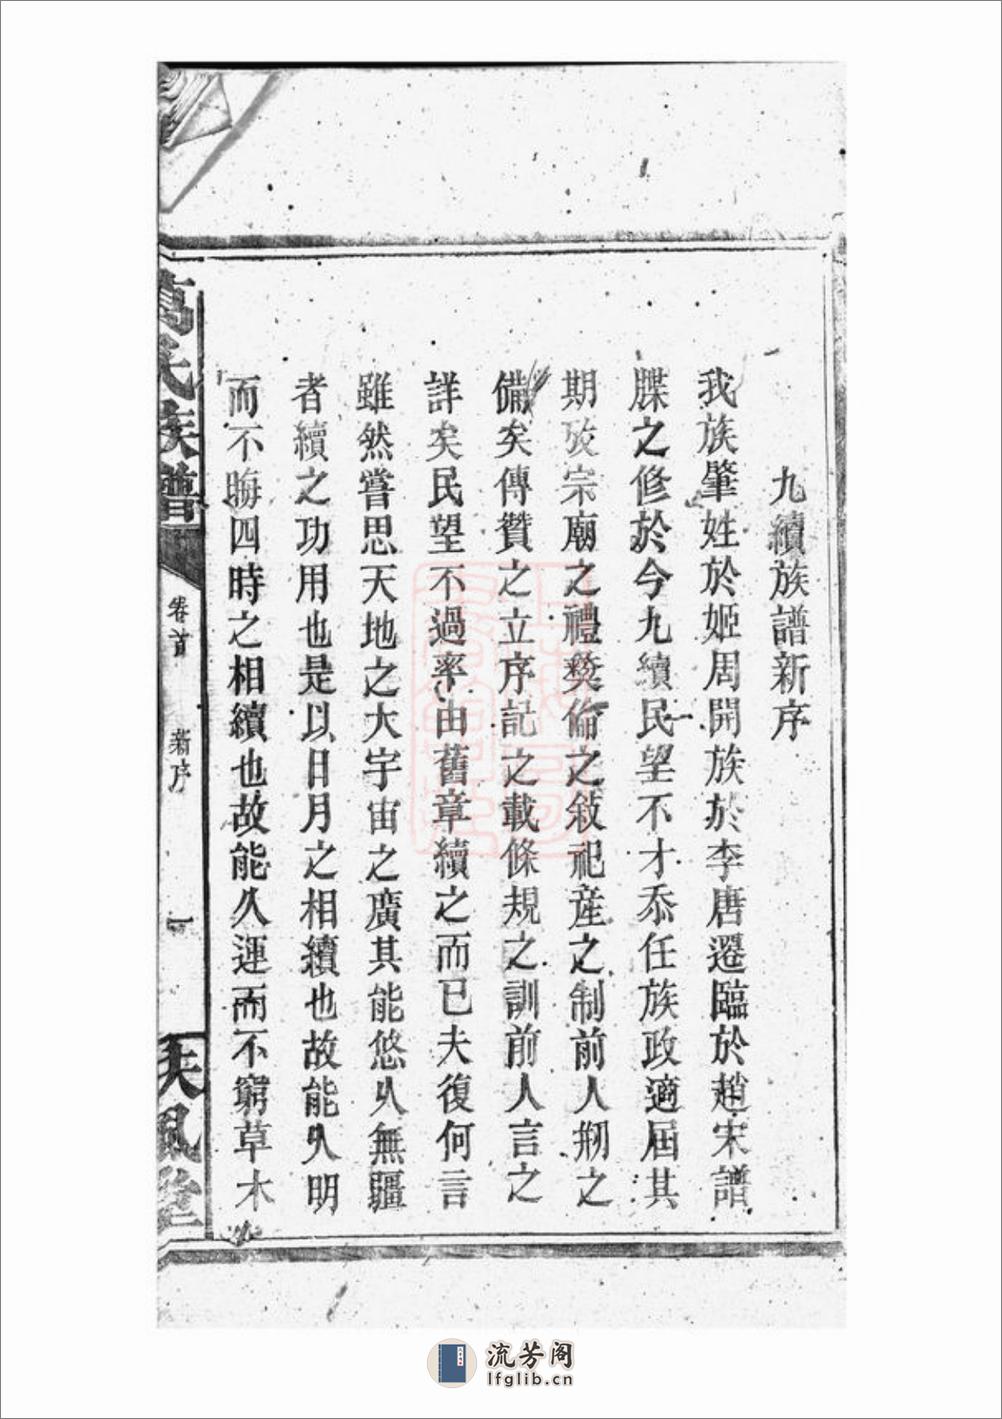 九續族譜新序
我族肇姓於姬周開族於李唐遷臨於趙宋譜
牒之修於今九續民望不才忝任族政適屆其
期攷宗廟之禮彜倫之敍祀產之制前人剏之
備矣傳贊之立序記之載條規之訓前人言之
詳矣民望不過率由舊章續之而已夫復何言
雖然嘗思天地之大宇宙之廣其能悠久無疆
者續之功用也是以日月之相續也故能久明
而不晦四時之相續也故能久運而不窮草木
氏族譜
卷首
新序
一
天風堂
流芳阁
lfglib.cn